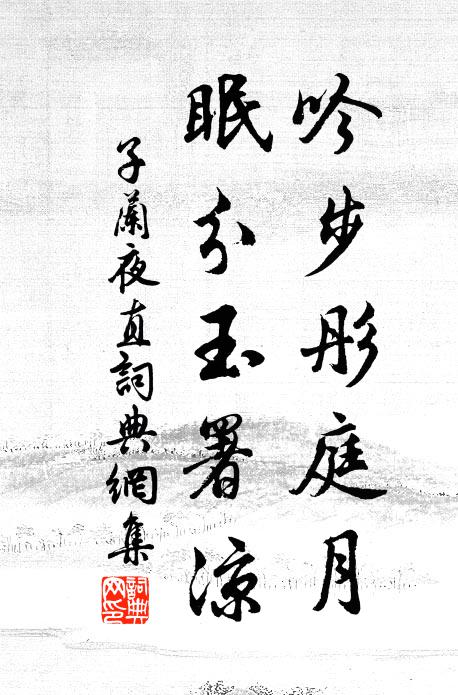 吟步彤庭月
眠分玉署涼
子蘭夜直詞典網集
詞典網印